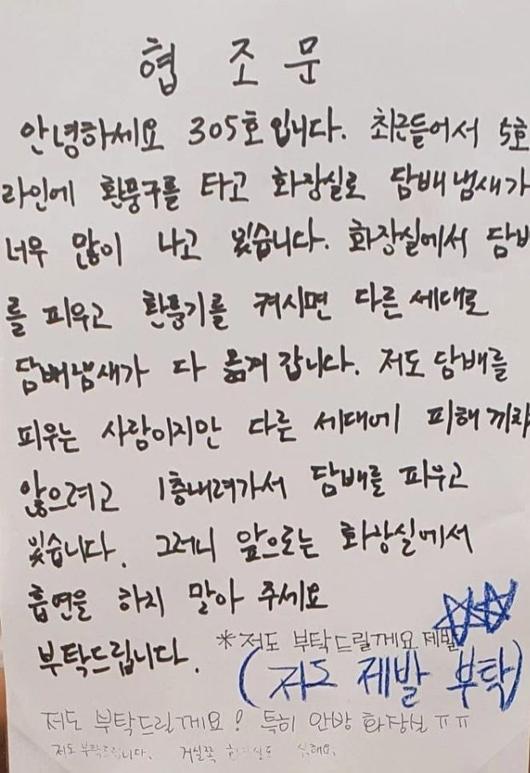 협 조 문
안녕하세요 305호입니다. 최근들어서 5호
라인에 환풍구를 타고 화장실로 담배냄새가
너무 많이 나고 있습니다. 화장실에서 담배
를 피우고 환풍기를 켜시면 다른 세대로
담배냄새가 다 옮겨 갑니다. 저도 담배를
피우는 사람이지만 다른 세대에 피해 끼치
않으려고 1층내려가서 담배를 피우고
있습니다. 그러니 앞으로는 화장실에서
흡연을 하지 말아 주세요
부탁드립니다. *저도 부탁드릴게요 제발
(저도 제발 부탁)
저도 부탁드릴게요! 특히 안방 화장실 ㅠㅠ
저도 부탁드립니다. 거실쪽 화장실도 심해요.